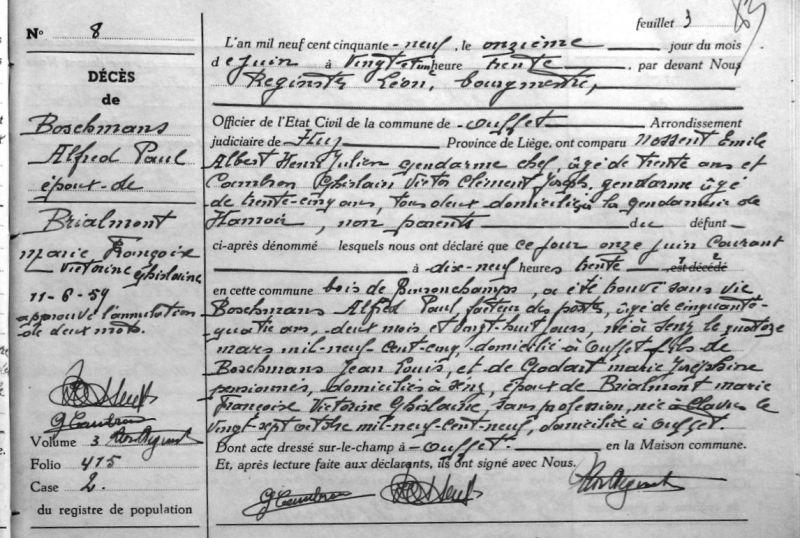 feuillet 3
N° 8
DÉCÈS
de
Boschmans
Alfred Paul
époux de
Brialmont
Marie Françoise
Victorine Ghislaine
11-6-59
approuvé l'annulation
de deux mots.
G Cambron
Volume 3
Folio 415
Case 2.
du registre de population
L'an mil neuf cent cinquante-neuf, le onzième jour du mois
de juin à vingt et une heure trente, par devant Nous
Reginster Léon, bourgmestre,
Officier de l'Etat Civil de la commune de Ouffet Arrondissement
judiciaire de Huy Province de Liège, ont comparu Nossent Emile
Albert Henri Julien gendarme chef, âgé de trente ans et
Cambron Ghislain Victor Clément Joseph, gendarme âgé
de trente-cinq ans, tous deux domiciliés à la gendarmerie de
Hamoir, non parents du défunt
ci-après dénommé lesquels nous ont déclaré que ce jour onze juin courant
à dix-neuf heures trente est décédé
en cette commune bois de , a été trouvé sans vie
Boschmans Alfred Paul, facteur des postes, âgé de cinquante-
quatre ans, deux mois et vingt-huit jours, né à Seny le quatorze
mars mil-neuf-cent-cinq, domicilié à Ouffet fils de
Boschmans Jean Louis, et de Godart Marie Joséphine
pensionnés, domiciliés à Seny, époux de Brialmont Marie
Françoise Victorine Ghislaine, sans profession, née à Clavier le
vingt-sept octobre mil-neuf-cent-neuf, domiciliée à Ouffet.
Dont acte dressé sur-le-champ à Ouffet. en la Maison commune.
Et, après lecture faite aux déclarants, ils ont signé avec Nous.
G Cambron